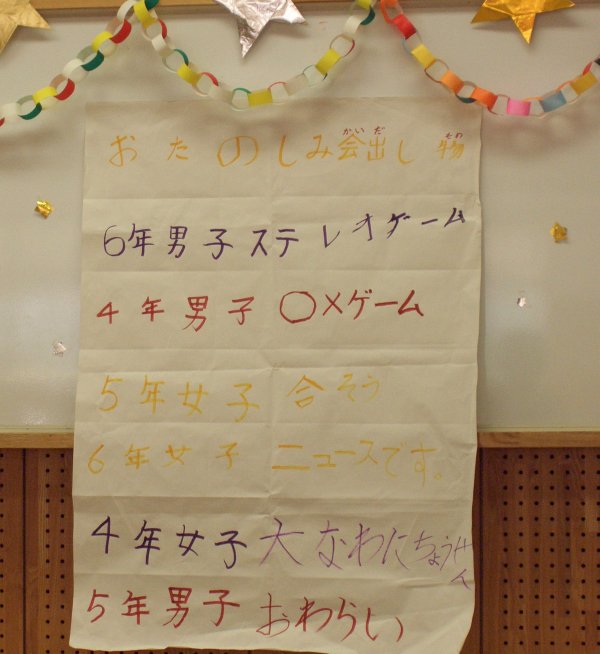 おたのしみ会出し物
6年男子 ステレオゲーム
4年男子 ○×ゲーム
5年女子 合そう
6年女子 ニュースです。
4年女子 大なわにちょうせん
5年男子 おわらい